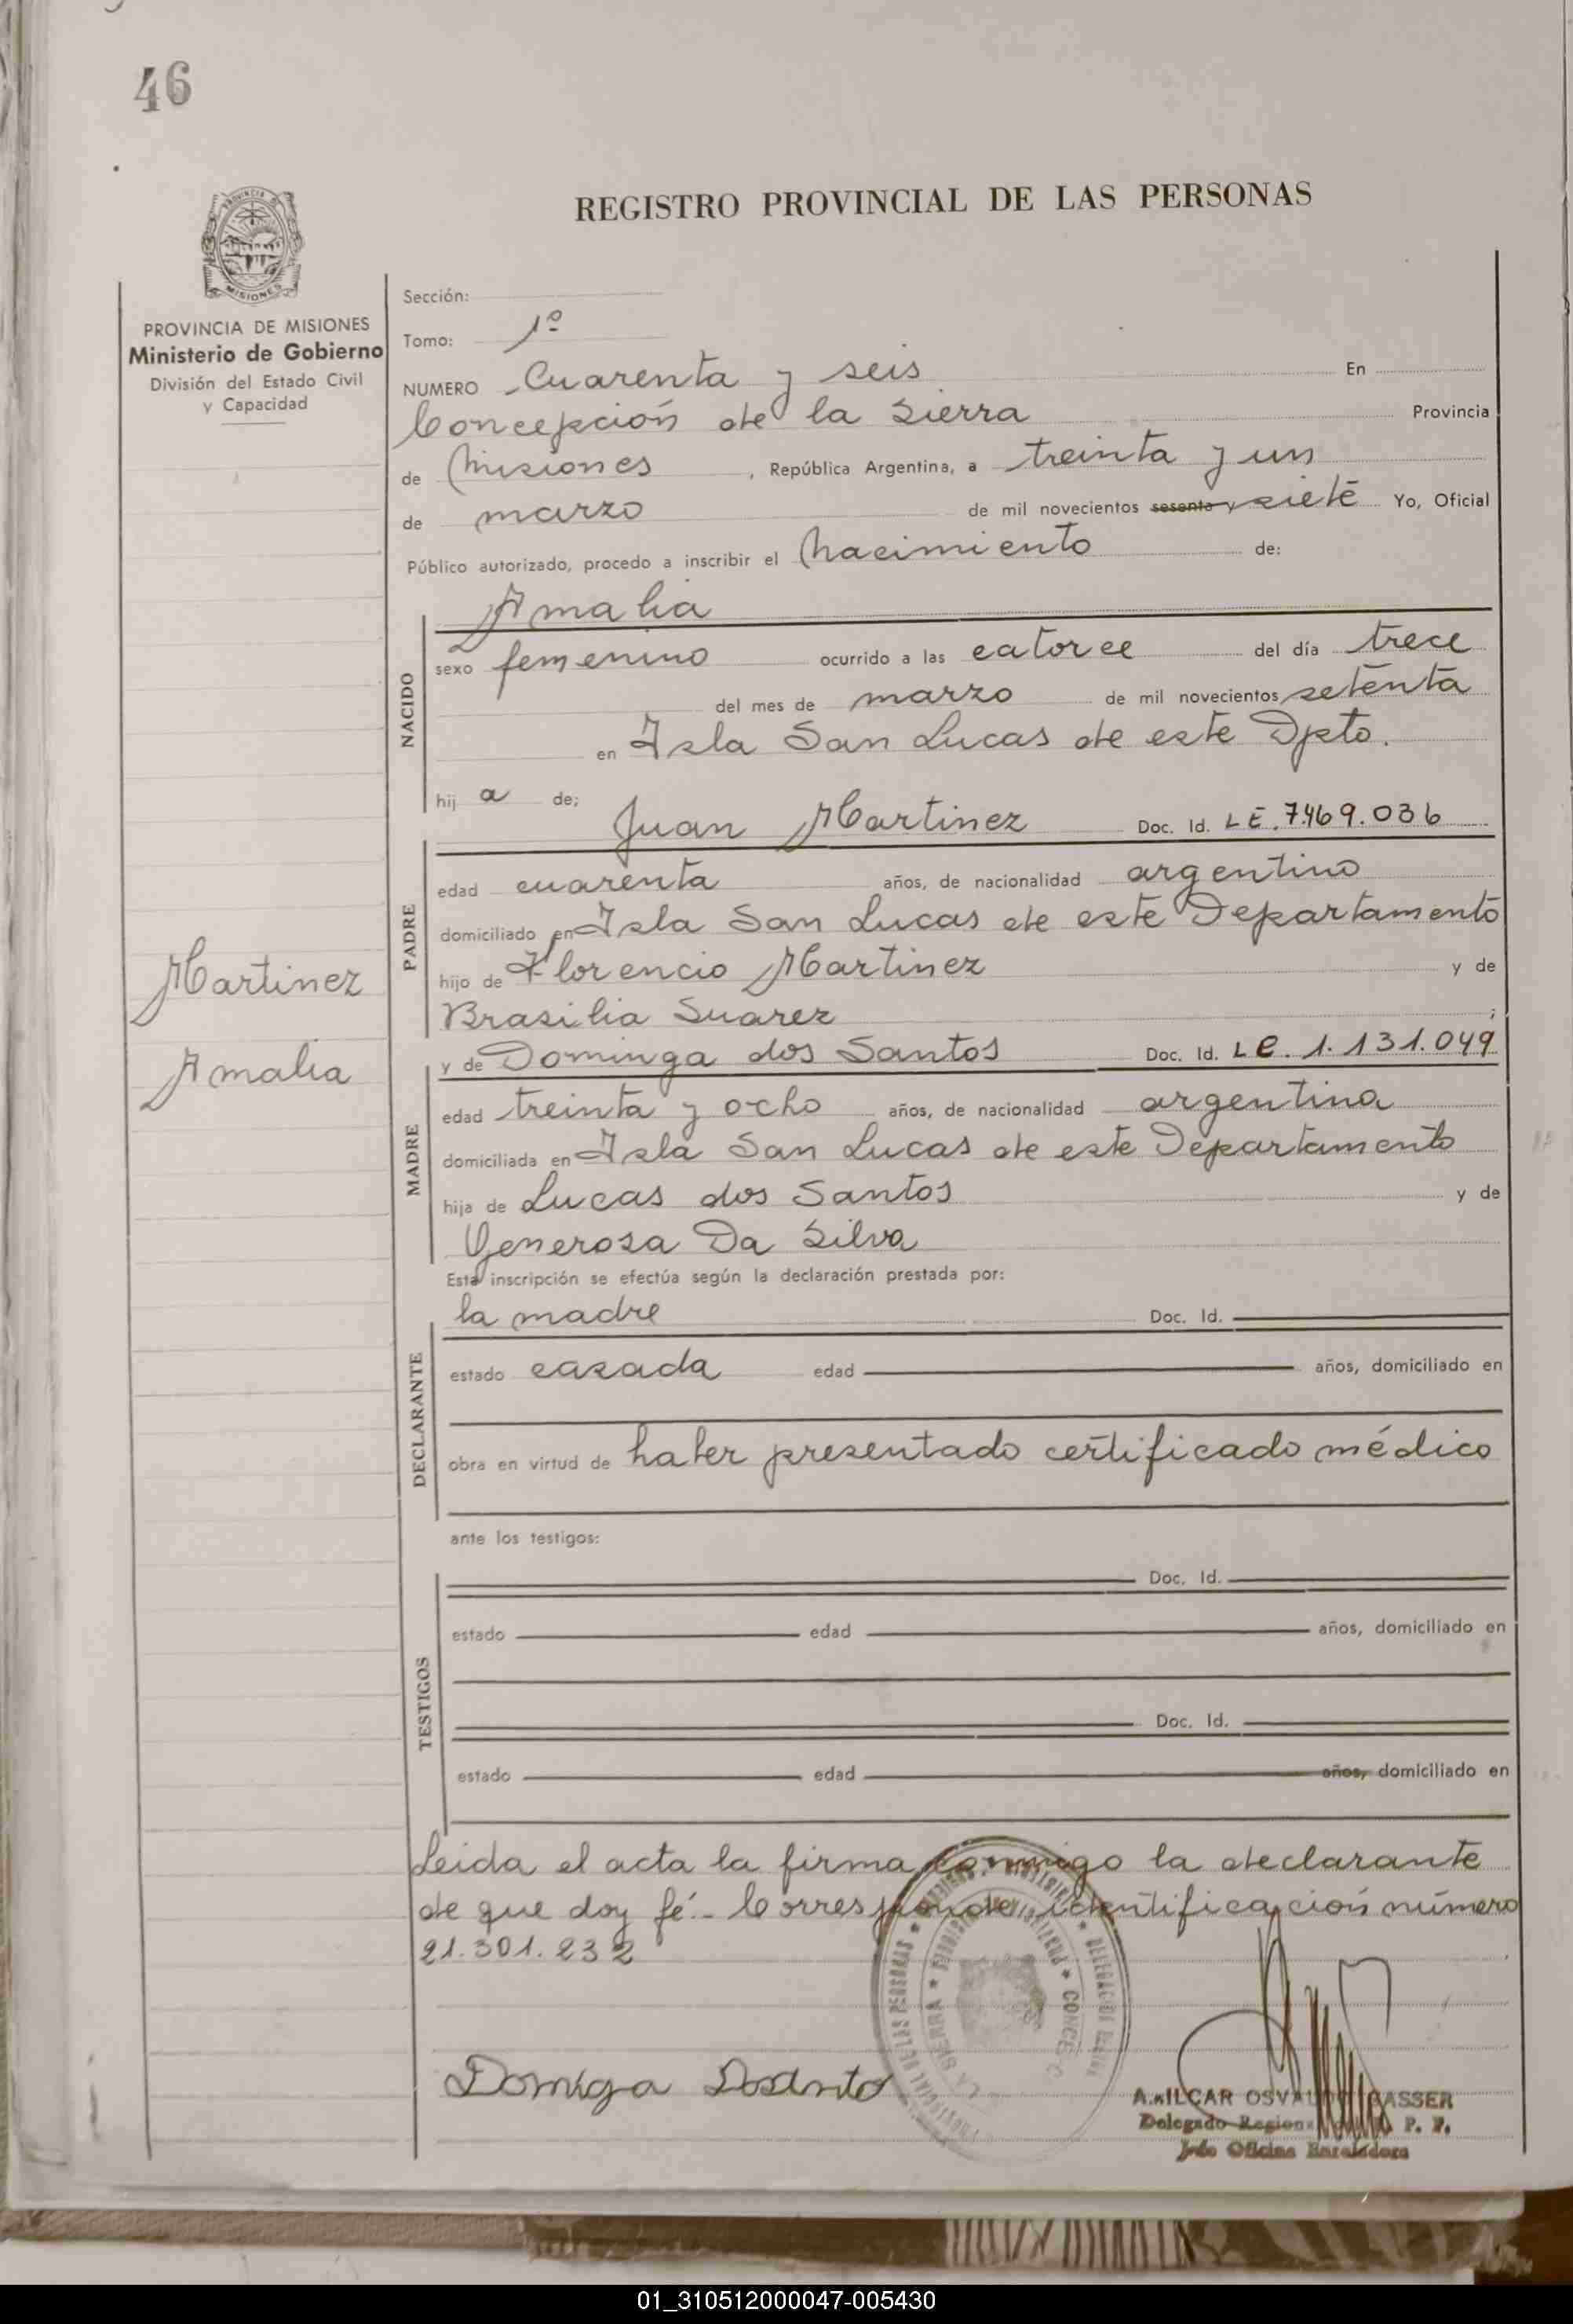 46
REGISTRO PROVINCIAL DE LAS PERSONAS
PROVINCIA DE MISIONES
Ministerio de Gobierno
División del Estado Civil
y Capacidad
Sección:
Tomo: 1º
NUMERO Cuarenta y seis En
Concepción de la Sierra Provincia
de Misiones, República Argentina, a treinta y un
de marzo de mil novecientos sesenta y siete Yo, Oficial
Público autorizado, procedo a inscribir el Nacimiento de:
Amalia
NACIDO
sexo femenino ocurrido a las catorce del día trece
del mes de marzo de mil novecientos setenta
en Isla San Lucas de este Dpto.
hij a de;
Juan Martinez Doc. Id. LE. 7.469.036
PADRE
edad cuarenta años, de nacionalidad argentino
domiciliado en Isla San Lucas de este Departamento
hijo de Florencio Martinez y de
Brasilia Suarez ;
y de Dominga dos Santos Doc. Id. LC. 1.131.049
MADRE
edad treinta y ocho años, de nacionalidad argentina
domiciliada en Isla San Lucas de este Departamento
hija de Lucas dos Santos y de
Generosa Da Silva
Martinez
Amalia
Esta inscripción se efectúa según la declaración prestada por:
la madre Doc. Id.
DECLARANTE
estado casada edad años, domiciliado en
obra en virtud de haber presentado certificado médico
ante los testigos:
TESTIGOS
Doc. Id.
estado edad años, domiciliado en
Doc. Id.
estado edad años, domiciliado en
Leida el acta la firma conmigo la declarante
de que doy fé.- Corresponde identificación número
21.301.232
Domiga Dosanto
AMILCAR OSVALDO GASSER
Delegado Regional P. P.
Jefe Oficina Enroladora
01_310512000047-005430